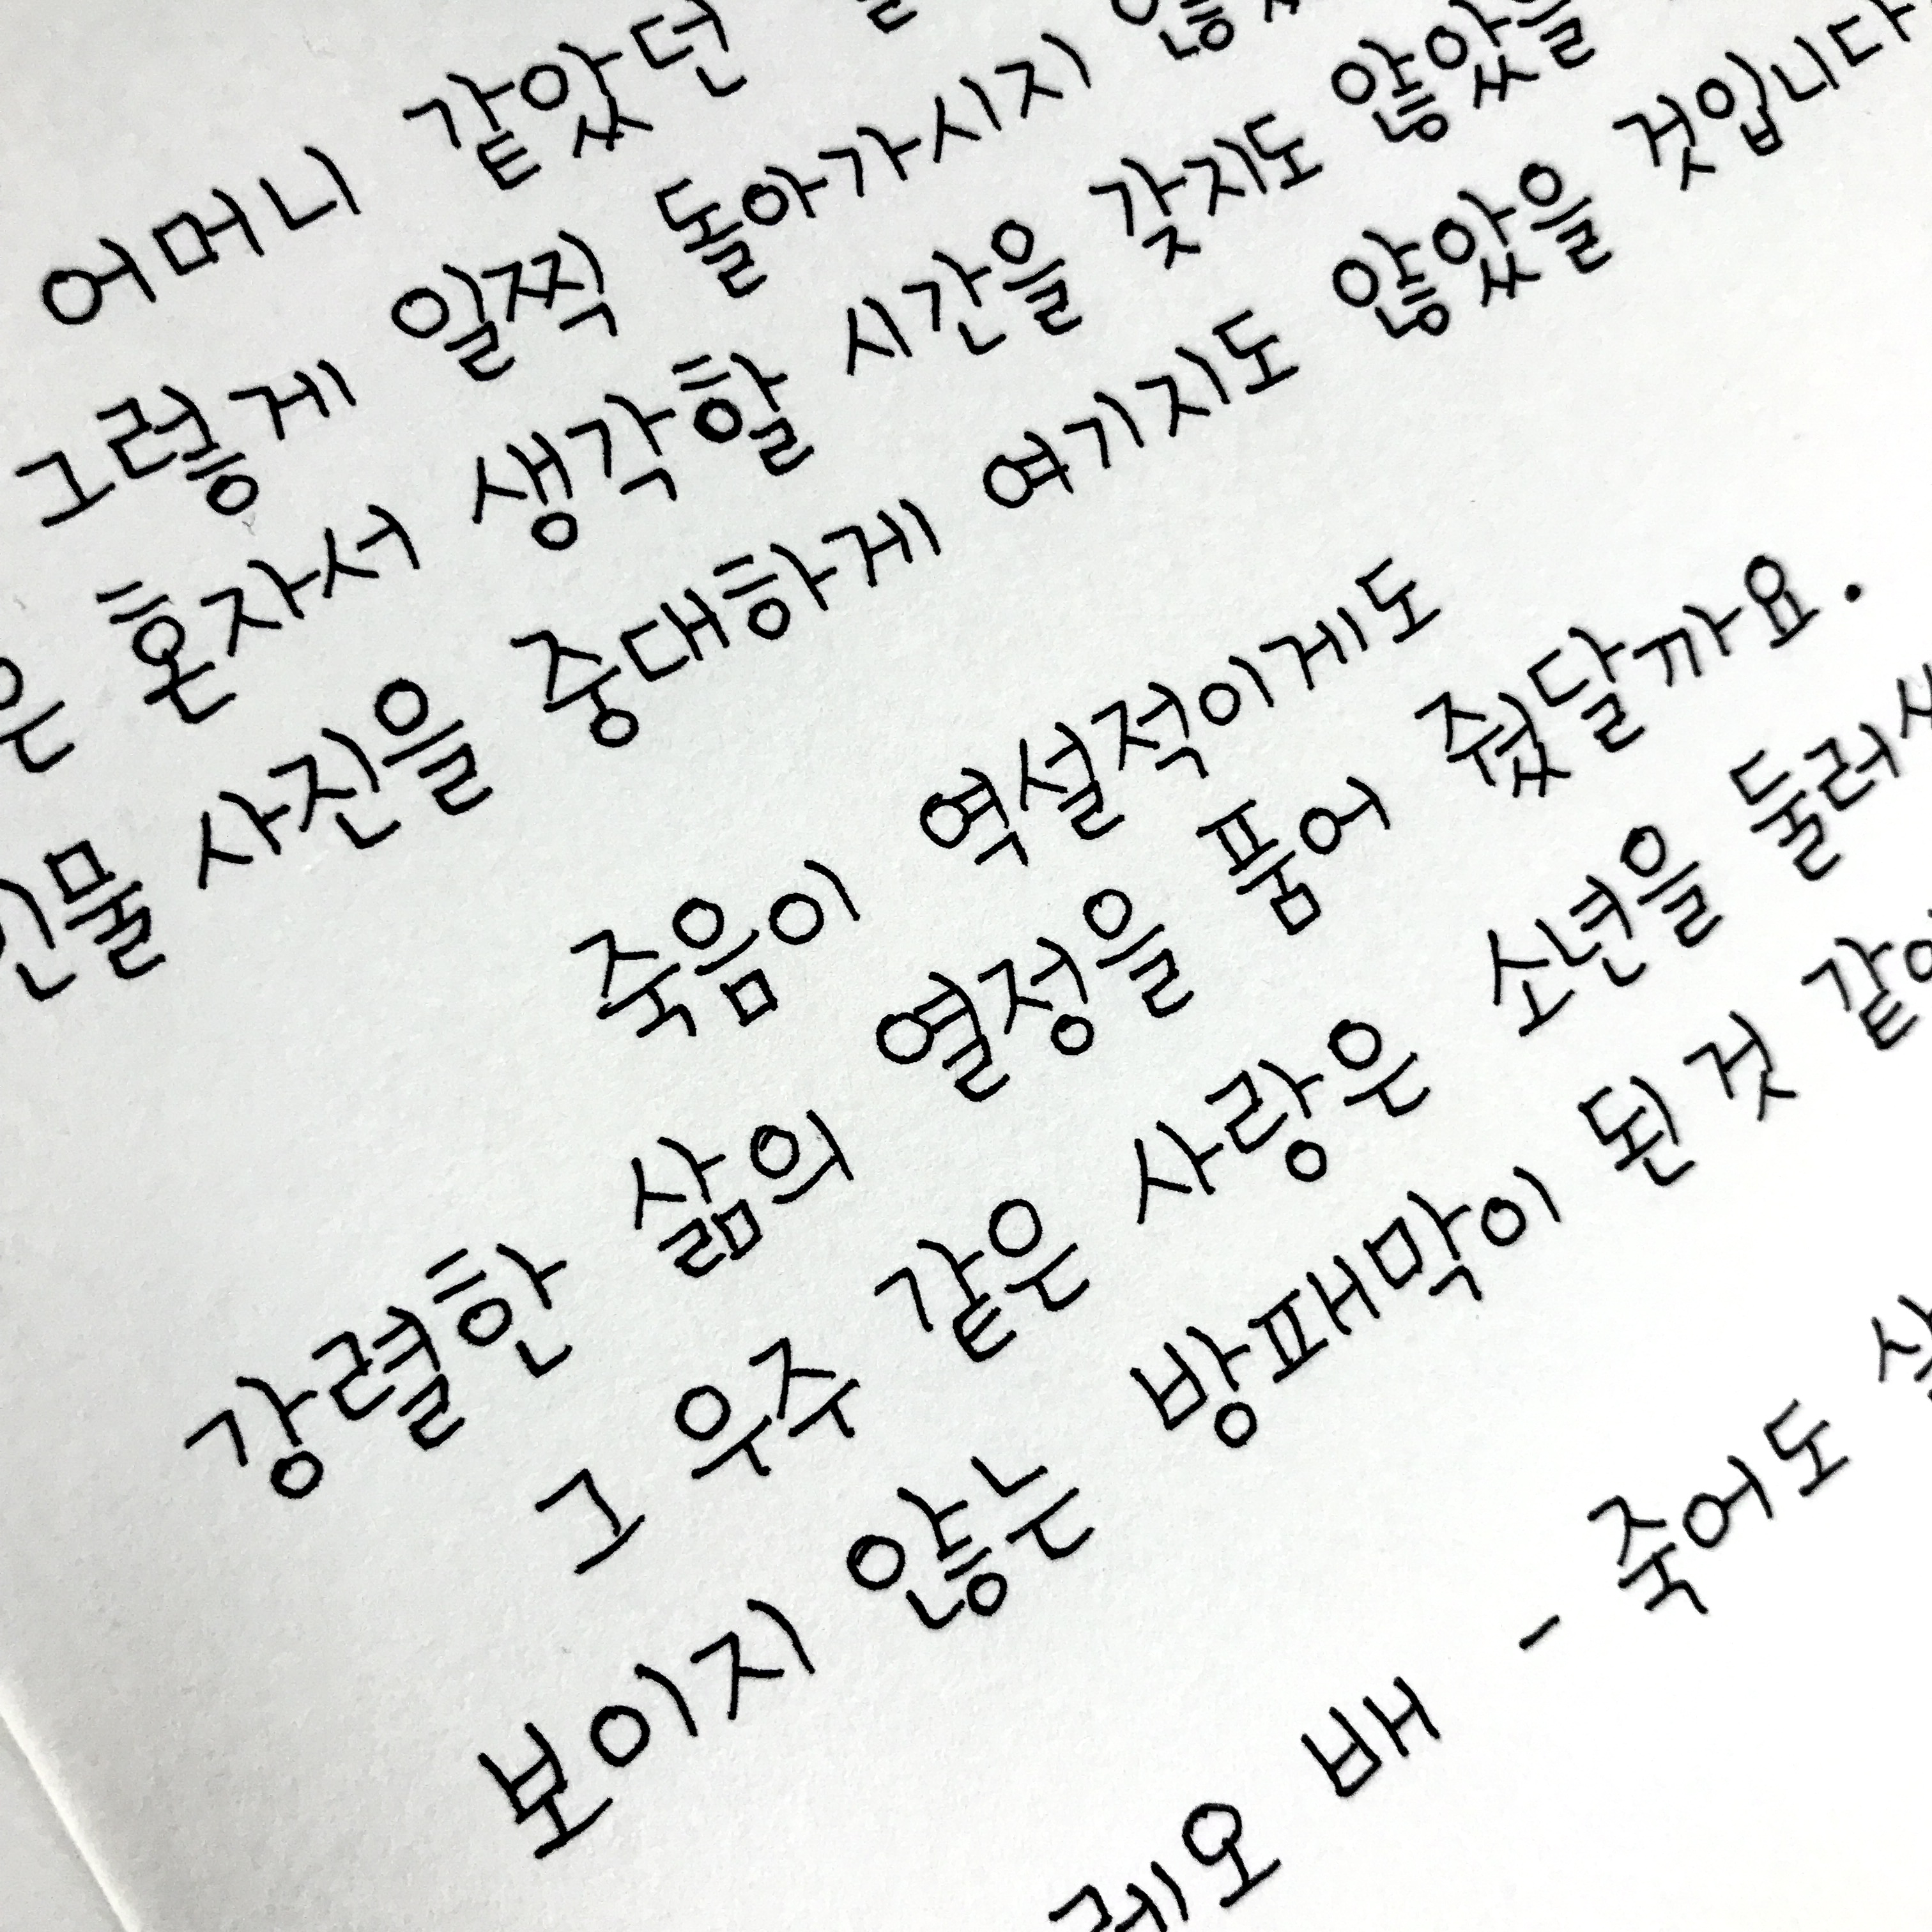 어머니 같았던
그렇게 일찍 돌아가시지
은 혼자서 생각할 시간을 갖지도 않았을
인물 사진을 중대하게 여기지도 않았을 것입니다
죽음이 역설적이게도
강렬한 삶의 열정을 품어 줬달까요.
그 우주 같은 사랑은 소년을 둘러싸
보이지 않는 방패막이 된 것 같
레오 배 - 죽어도